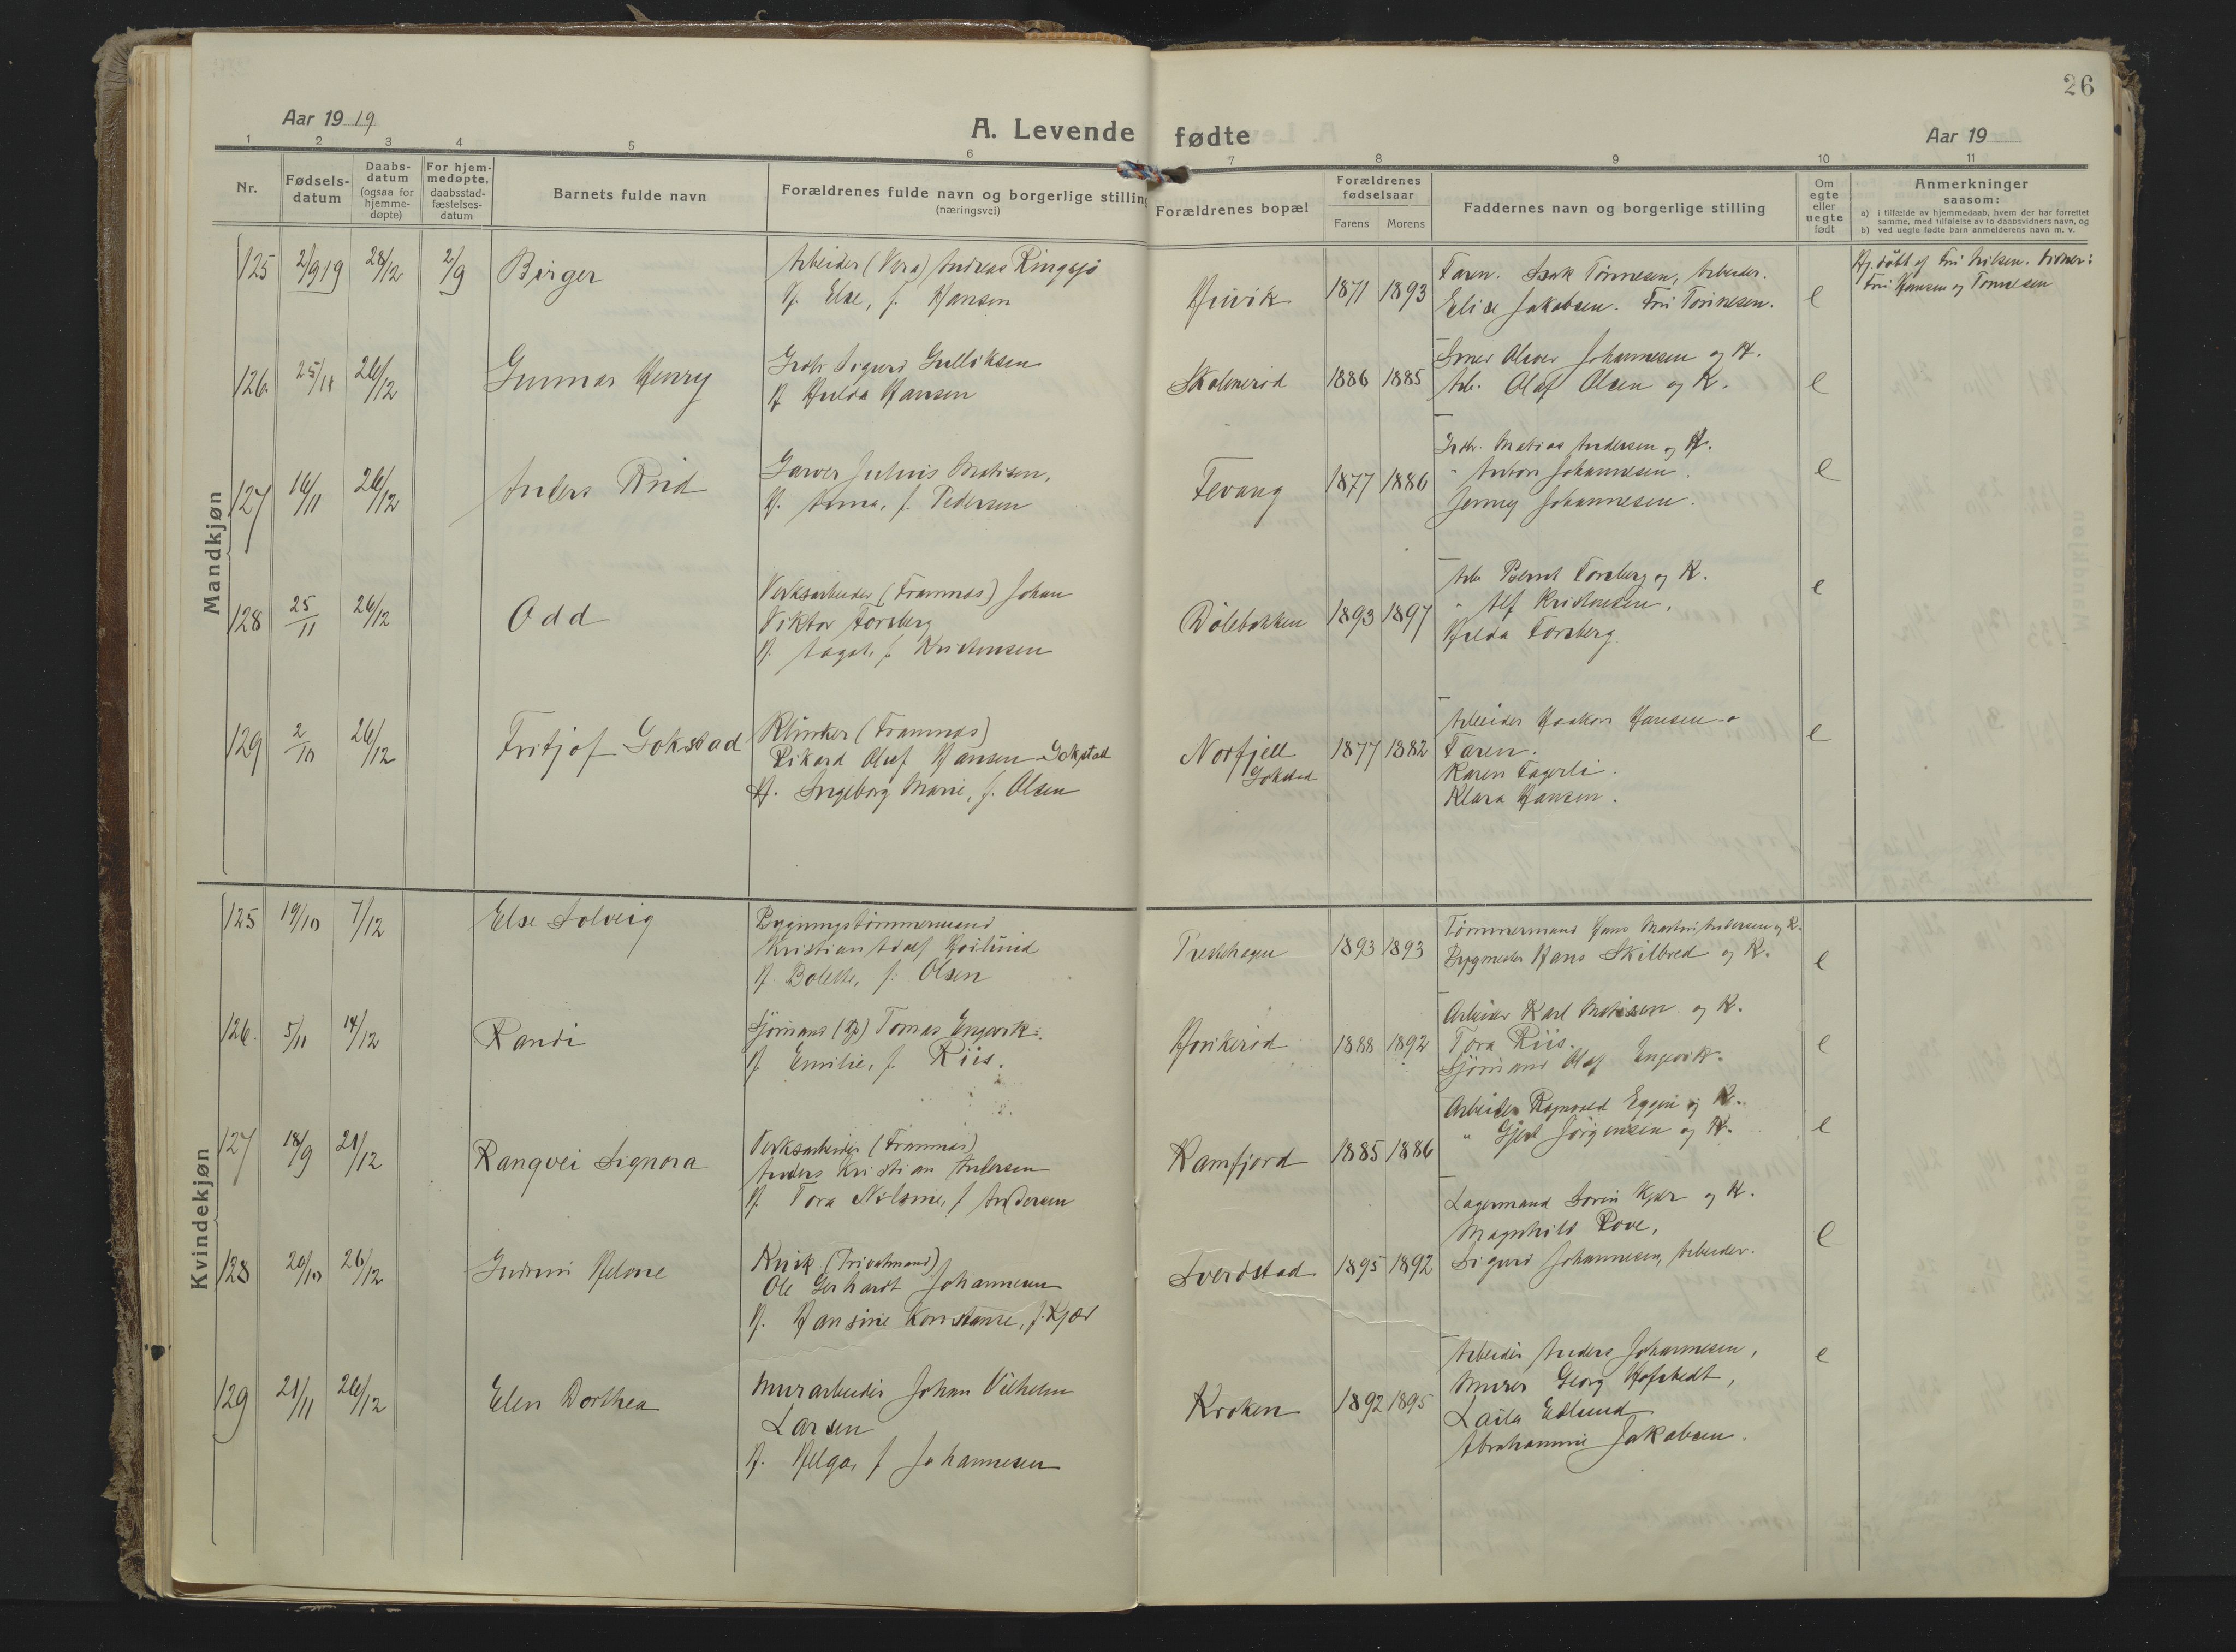 26
Aar 1919
A. Levende fødte
Aar 19
1 2 3 4 5 6 7 8 9 10 11
Nr.
Fødsels-
datum
Daabs-
datum
(ogsaa for
hjemme-
døpte)
For hjem-
medøpte,
daabsstad-
fæstelses-
datum
Barnets fulde navn
Forældrenes fulde navn og borgerlige stilling
(næringsvei)
Forældrenes bopæl
Forældrenes
fødselsaar
Farens Morens
Faddernes navn og borgerlige stilling
Om
egte
eller
uegte
født
Anmerkninger
saasom:
a) i tilfælde av hjemmedaab, hvem der har forrettet
samme, med tilføielse av to daabsvidners navn, og
b) ved uegte fødte barn anmelderens navn m. v.
Mandkjøn
125 2/9 19 28/12 2/9 Birger
Arbeider (Vera) Andreas Ringsjø
H. Else, f. Hansen
Huvik 1871 1893
Faren. Isak Tønnesen, Arbeider.
Elise Jakobsen. Fru Tønnesen.
e
Hj. døbt af Fru Nilsen. Vidner:
Fru Hansen og Tønnesen
126. 25/11 26/12 Gunnar Henry
Grdbr. Sigurd Gulliksen
H Hulda Hansen
Skolmerød 1886 1885
Smed Oliver Johannesen og H.
Arb. Olaf Olsen og K.
e
127 16/11 26/12 Anders
Garver Julius Matisen,
H. Anna, f. Pedersen
Tevang 1877 1886
Grdbr. Matias Andersen og H.
" Anton Johannesen.
Jenny Johannesen.
e
128 25/11 26/12 Odd
Verksarbeider (Framnæs) Johan
Viktor Forsberg
H. Aagot, f. Kristensen
Dølebakken 1893 1897
Arb. Bernt Forsberg og K.
" Alf Kristensen,
Hulda Forsberg
e
129 2/10 26/12 Fritjof Gokstad
Klinker (Framnæs)
Rikard Oluf Hansen Gokstad
H. Ingeborg Marie, f. Olsen
Norfjell
Gokstad
1877 1882
Arbeider Haakon Hansen
Faren.
Karen Fagerli.
Klara Hansen.
e
Kvindekjøn
125 19/10 7/12 Else Solveig
Bygningstømmermand
Kristian Adolf Høilund
H. Bolette, f. Olsen
Prestehagen 1893 1893
Tømmermand Hans Martin Andersen og K.
Bygmester Hans Skilbred og K.
e
126. 5/11 14/12 Randi
Sjømand Tomas Engevik.
H. Emilie, f. Riis.
Hovikerød 1888 1892
Arbeider Karl Matisen og K.
Tora Riis.
Sjømand Olaf Engevik.
e
127 18/9 21/12 Rangvei Signora
Verksarbeider (Framnæs)
Anders Kristian Andersen
H. Tora Nilsine, f. Andersen
Kamfjord 1885 1886
Arbeider Ragnvald Eggen og K.
" Gjert Jørgensen og H.
e
128 20/10 26/12 Gudrun Helene
Kusk (Privatmand)
Ole Gerhardt Johannesen
H. Hansine Konstanse, f. Kjær
Sverdstad 1895 1892
Lagermand Søren Kjær og K.
Magnhild Rove,
Sigurd Johannesen, Arbeider.
e
129 21/11 26/12 Elen Dorthea
Murarbeider Johan Vilhelm
Larsen
H. Helga, f Johannesen
Kroken 1892 1895
Arbeider Anders Johannesen,
Murer Georg Hofstedt,
Laila Edlund
Abrahamine Jakobsen.
e